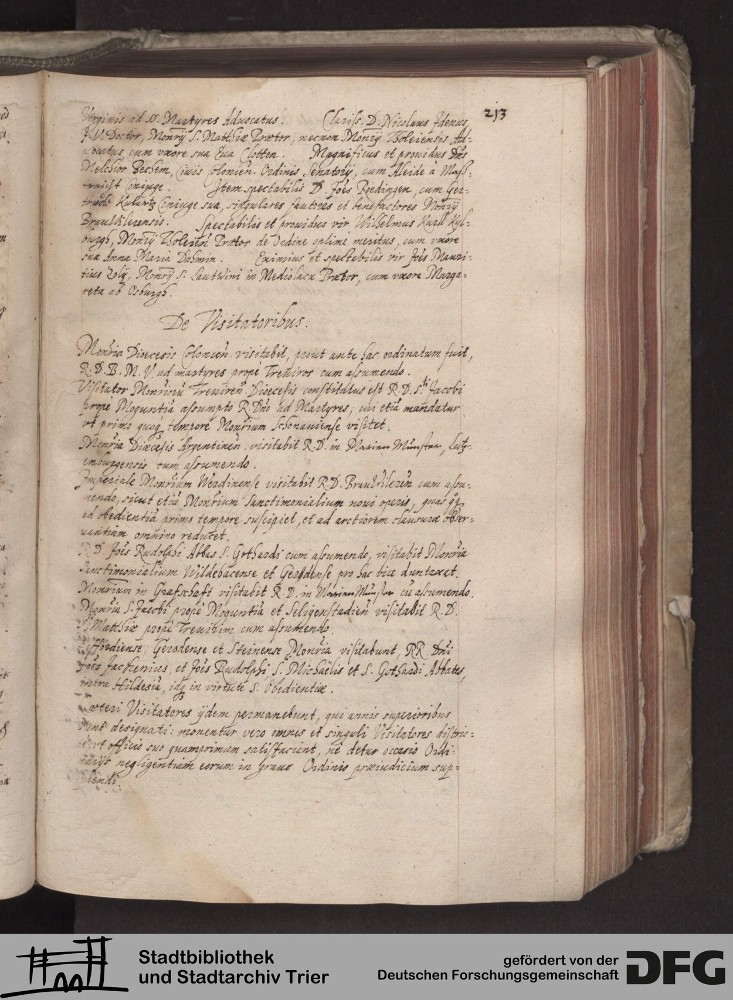 213
Virginis ad SS. Martyres Advocatus. Clariss. D. Nicolaus Hdenus,
J.V. Doctor, Monrÿ S. Matthiæ Prætor, necnon Monrÿ Tholeiensis, Ad-
uocatus cum vxore sua Eua Clotten. Magnificus et prouidus Dns
Melchior Bechem, Ciuis Colonien. Ordinis Senatorÿ, cum Aleide à Mass-
tricht Coniuge. Item spectabilis D. Joes Roedingen, cum Ger-
trude Kulartz Coniuge sua, singulares fautores et benefactores Monrÿ
Brauwilerensis. Spectabilis et prouidus vir Wilhelmus Kuall Kyl-
burgh, Monrÿ Tholeien Prætor de Ordine optime meritus, cum vxore
sua Anna Maria Dahmin. Eximius et spectabilis vir Joes Mauri-
tius Zolÿ, Monrÿ S. Lautwini in Mediolacu Prætor, cum vxore Marga-
reta ab Osburgh.
De Visitatoribus.
Monria Diœcesis Colonien. visitabit, prout ante hac ordinatum fuit,
R.D. B.M.V. ad martyres prope Treuiros cum assumendo.
Visitator Monriorū Treuiren. Diœcesis constitutus est R.D. Sti Jacobi
prope Moguntiā assumpto R. Dno ad Martyres, cui etiā mandatur
vt primo quoq tempore Monrium Schonauiense visitet.
Monria Diœcesis Argentinen. visitabit R.D. in Marien Münster, Lut-
emburgensis cum assumendo.
Imperiale Monrium Werdinense visitabit R.D. Brauwileren cum assu-
mendo, sicut etiā Monrium Sanctimonialium noui operis, quas
ad obedientiā primo tempore suscipiet, et ad arctiorem clausuræ obser-
uantiam omnino reducet.
R.D. Joes Rudolphi Abbas S. Gothardi cum assumendo, visitabit Monria
Sanctimonialium Wildebacense et Gerodense pro hac vice duntaxat.
Monrium in Grafschaft visitabit R.D. in Marien Münster cū assumendo.
Monria S. Jacobi prope Moguntiā et Seligenstadien visitabit R.D.
S. Matthiæ prope Treuirim cum assumendo.
Gerodense et Steinense Monria visitabunt RR. Dni
Joes Jacchenius, et Joes Rudolphi S. Michaelis et S. Gothardi Abbates,
intra Hildesiā, idq in virtute S. Obedientiæ.
Cæteri Visitatores ÿdem permanebunt, qui annis superioribus
sunt designati: monentur vero omnes et singuli Visitatores distric-
te vt officio suo quamprimum satisfaciant, ne detur occasio Ordi-
narÿs negligentiam eorum in graue Ordinis præiudicium sup-
plendi.
Stadtbibliothek
und Stadtarchiv Trier
gefördert von der
Deutschen Forschungsgemeinschaft
DFG